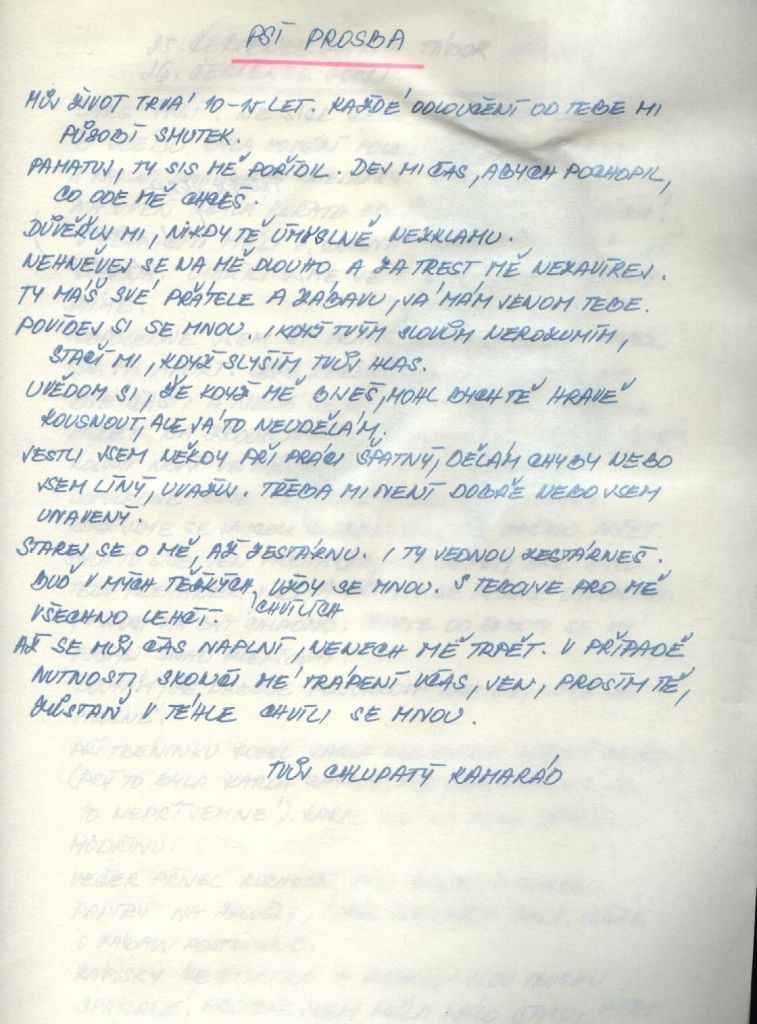 PSÍ PROSBA
MŮJ ŽIVOT TRVÁ 10-15 LET. KAŽDÉ ODLOUČENÍ OD TEBE MI
PŮSOBÍ SMUTEK.
PAMATUJ, TY SIS MĚ POŘÍDIL. DEJ MI ČAS, ABYCH POCHOPIL,
CO ODE MĚ CHCEŠ.
DŮVĚŘUJ MI, NIKDY TĚ ÚMYSLNĚ NEZKLAMU.
NEHNĚVEJ SE NA MĚ DLOUHO A ZA TREST MĚ NEZAVÍREJ.
TY MÁŠ SVÉ PŘÁTELE A ZÁBAVU, JÁ MÁM JENOM TEBE.
POVÍDEJ SI SE MNOU. I KDYŽ TVÝM SLOVŮM NEROZUMÍM,
STAČÍ MI, KDYŽ SLYŠÍM TVŮJ HLAS.
UVĚDOM SI, ŽE KDYŽ MĚ BIJEŠ, MOHL BYCH TĚ HRAVĚ
KOUSNOUT, ALE JÁ TO NEUDĚLÁM.
JESTLI JSEM NĚKDY PŘI PRÁCI ŠPATNÝ, DĚLÁM CHYBY NEBO
JSEM LÍNÝ, UVAŽUJ. TŘEBA MI NENÍ DOBŘE NEBO JSEM
UNAVENÝ.
STAREJ SE O MĚ, AŽ ZESTÁRNU. I TY JEDNOU ZESTÁRNEŠ.
BUĎ V MÝCH TĚŽKÝCH CHVÍLÍCH VŽDY SE MNOU. S TEBOU JE PRO MĚ
VŠECHNO LEHČÍ.
AŽ SE MŮJ ČAS NAPLNÍ, NENECH MĚ TRPĚT. V PŘÍPADĚ
NUTNOSTI SKONČI MÉ TRÁPENÍ VČAS, JEN, PROSÍM TĚ,
ZŮSTAŇ V TÉHLE CHVÍLI SE MNOU.
TVŮJ CHLUPATÝ KAMARÁD